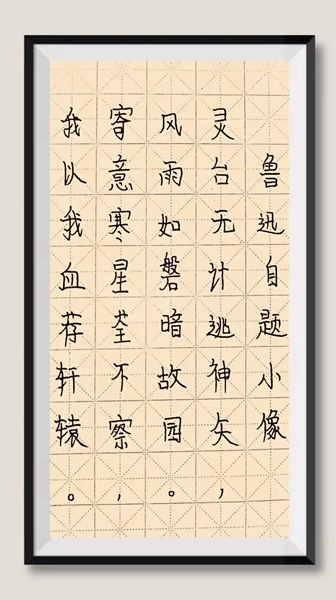 鲁迅自题小像
灵台无计逃神矢，
风雨如磐暗故园。
寄意寒星荃不察，
我以我血荐轩辕。